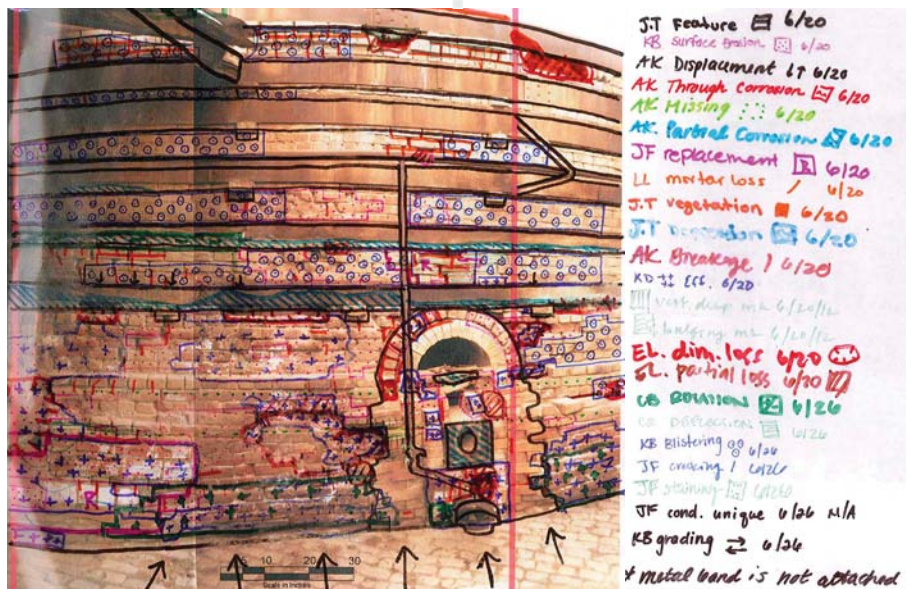 R
R
5 10 20 30 40
Scale in Inches
J.T Feature 6/20
KB surface Erosion 6/20
AK Displacement ↓↑ 6/20
AK Through corrosion 6/20
AK Missing 6/20
AK. Partial Corrosion 6/20
JF replacement R 6/20
LL mortar loss / 6/20
J.T vegetation 6/20
J.T 6/20
AK Breakage 6/20
KD ‡‡ Eff. 6/20
vert. disp mL 6/20/12
bulging mL 6/20/12
EL. dim. loss 6/20
EL. partial loss 6/20
CB ROTATION 6/26
CB DEFLECTION 6/26
KB Blistering 6/26
JF cracking / 6/26
JF staining 6/26
JF cond. unique 6/26 N/A
KB grading ⇄ 6/26
* metal band is not attached